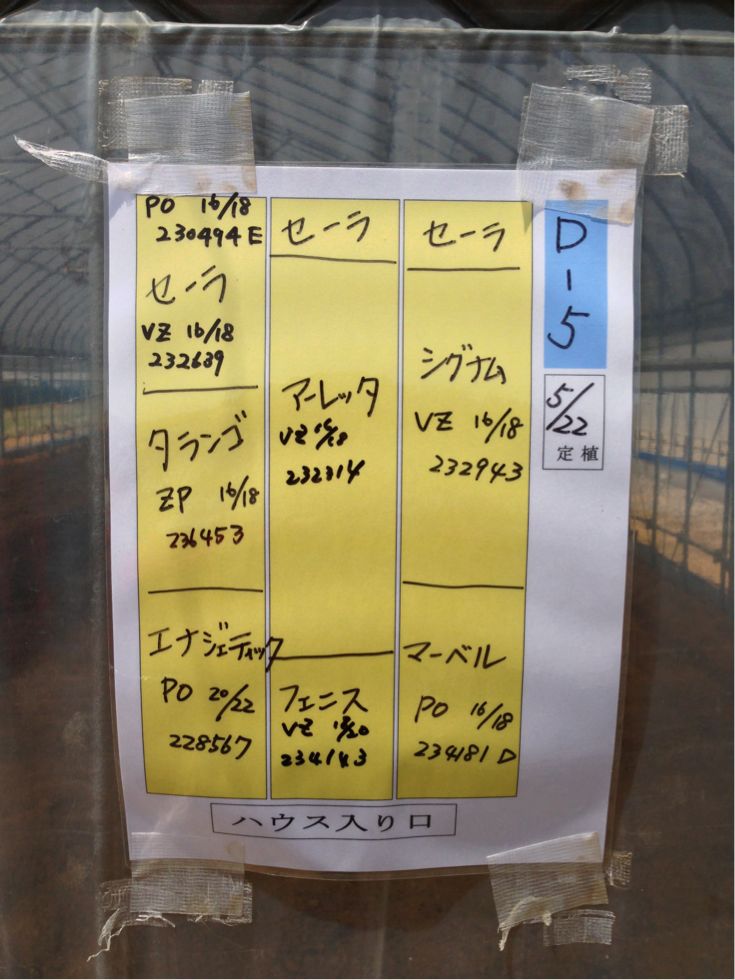 D-5
5/22
定植
セーラ
シグナム
VZ 16/18
232943
マーベル
PO 16/18
234181 D
セーラ
アーレッタ
VZ 16/18
232314
フェニス
VZ 18/20
234143
PO 16/18
230494 E
セーラ
VZ 16/18
232639
タランゴ
ZP 16/18
236453
エナジェティック
PO 20/22
228567
ハウス入り口